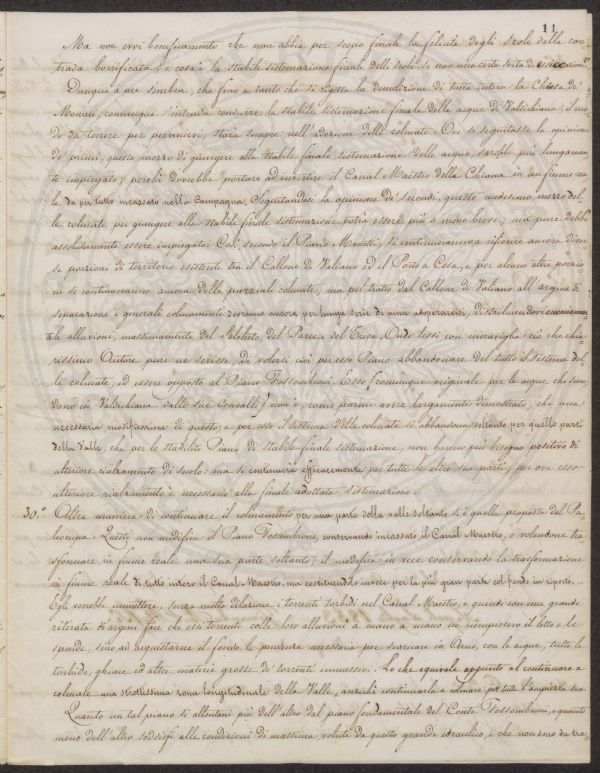 11
Ma non evvi bonificamento che non abbia per scopo finale la felicità degli scoli della con-
trada bonificata, e cosa è la stabile sistemazione finale delli scoli, se non una certa sorta di
Dunque a me sembra, che fino a tanto che si rigetta la demolizione di tutta intera la Chiusa de'
Monaci, comunque s'intenda condurre la stabile sistemazione finale delle acque di Valdichiana, il mo-
do da tenere per pervenirvi, starà sempre nell'adozione delle colmate. Ove si seguitasse la opinione
de' primi, questo mezzo di giungere alla stabile finale sistemazione delle acque, sarebbe più lungamen-
te impiegato; perchè dovrebbe portare ad invertere il Canal Maestro della Chiana in un fiume rea-
le da per tutto incassato nella Campagna. Seguitandosi la opinione de' secondi, questo medesimo mezzo del-
le colmate per giungere alla stabile finale sistemazione potrà essere più o meno breve; ma pure debbe
assolutamente essere impiegato. Così secondo il Piano Manetti, si continueranno a rifiorire ancora diver-
se porzioni di territorio esistenti tra il Callone di Valiano ed il Porto a Cesa, e per alcune altre porzio-
ni si continueranno ancora delle parziali colmate; ma pel tratto dal Callone di Valiano all'argine di
separazione i generali colmamenti dovranno ancora per lunga serie di anni adoperarvisi, distribuendovi
le alluvioni, massimamente del Salcheto, del Parce e del Tresa. Onde lessi con meraviglia ciò che chia-
rissimo Autore pure ne scrisse, di volersi cioè per esso Piano abbandonare del tutto il sistema del-
le colmate, ed essere opposto al Piano Fossombroni. Esso (comunque originale per le acque che scen-
dono in Valdichiana dalle sue Convalli) non è, come parmi avere largamente dimostrato, che una
necessaria modificazione di questo; e per esso il sistema delle colmate si abbandona soltanto per quelle parti
della Valle, che, per lo stabilito Piano di stabile finale sistemazione, non hanno più bisogno positivo di
ulteriore rialzamento di suolo: ma si continuerà efficacemente per tutte le altre sue parti, per ove esso
ulteriore rialzamento è necessario alla finale adottata sistemazione.
30.° Altra maniera di continuare il colmamento per una parte della valle soltanto si è quella proposta dal Pa-
leocapa. Questi non modifica il Piano Fossombroni, conservando incassato il Canal Maestro, e volendone tra-
sformare in fiume reale una sua parte soltanto; il modifica in vece conservando la trasformazione
in fiume reale di tutto intero il Canal Maestro, ma costituendolo invece per la più gran parte col fondo in riporto.
Egli vorrebbe immettere, senza molta dilazione, i torrenti torbidi nel Canal Maestro, e quindi con una grande
ritirata di argini fare che essi torrenti colle loro alluvioni a mano a mano ne riempissero il letto e le
sponde, sino ad acquistarne il fiocco la pendenza necessaria per scaricare in Arno, con le acque, tutte le
torbide, ghiare ed altre materie grosse de' torrenti immessivi. Lo che equivale appunto al continuare a
colmare una strettissima zona longitudinale della Valle, anzichè continuarla a colmare per tutta l'ampiezza sua.
Quanto un tal piano si allontani più dell'altro dal piano fondamentale del Conte Fossombroni, e quanto
meno dell'altro soddisfi alle condizioni di massima, volute da questo grande idraulico, e che non sono da tra-